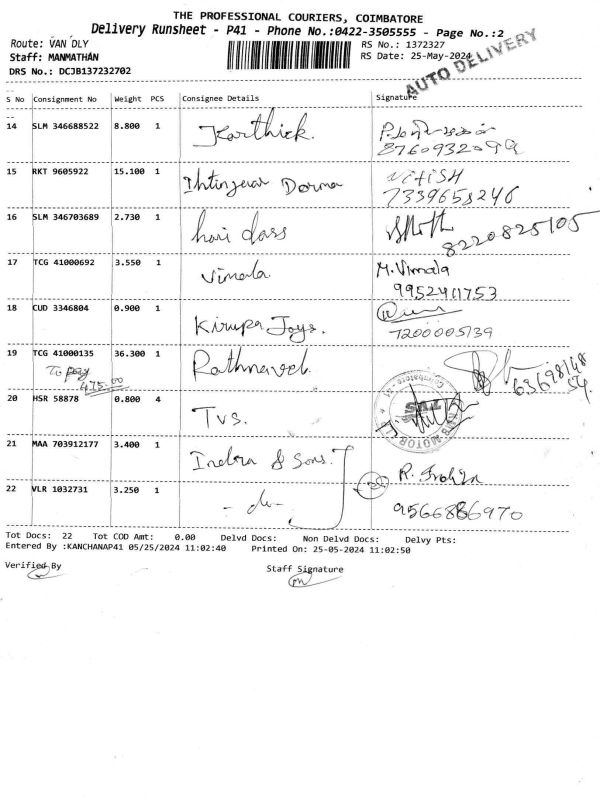 THE PROFESSIONAL COURIERS, COIMBATORE
Delivery Runsheet - P41 - Phone No.:0422-3505555 - Page No.:2
Route: VAN DLY
RS No.: 1372327
Staff: MANMATHAN
RS Date: 25-May-2024
DRS No.: DCJB137232702
AUTO DELIVERY
S No Consignment No Weight PCS Consignee Details Signature
14 SLM 346688522 8.800 1 Karthick.
8760932099
15 RKT 9605922 15.100 1 Dorma Nitish
7339658246
16 SLM 346703689 2.730 1 hari dass
8220825105
17 TCG 41000692 3.550 1 Vimala M. Vimala
9952411753
18 CUD 3346804 0.900 1 Kirupa Joys.
7200005139
19 TCG 41000135 36.300 1 Rathnavel.
To pay
475.00
20 HSR 58878 0.800 4 Tvs.
21 MAA 703912177 3.400 1 Indra & Sons.
22 VLR 1032731 3.250 1 - do -
9566886970
Tot Docs: 22 Tot COD Amt: 0.00 Delvd Docs: Non Delvd Docs: Delvy Pts:
Entered By :KANCHANAP41 05/25/2024 11:02:40 Printed On: 25-05-2024 11:02:50
Verified By Staff Signature